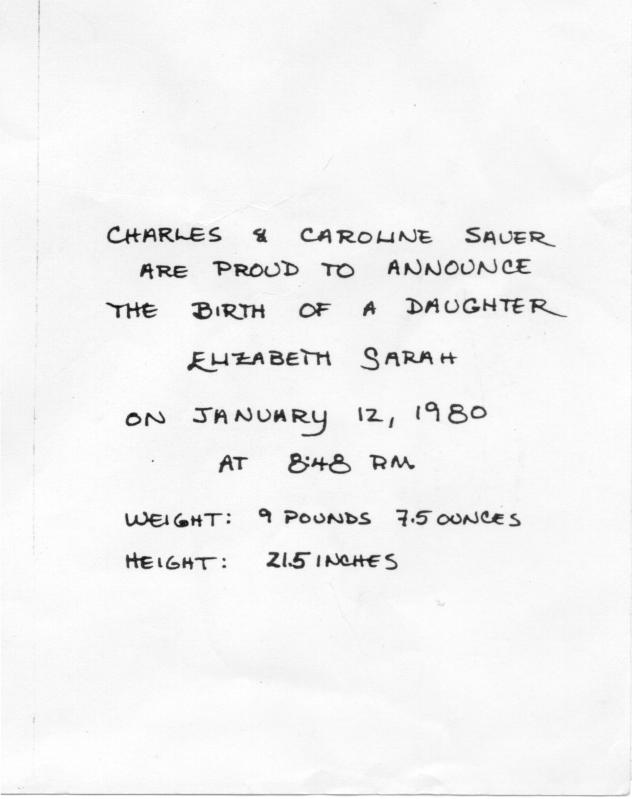 CHARLES & CAROLINE SAUER
ARE PROUD TO ANNOUNCE
THE BIRTH OF A DAUGHTER
ELIZABETH SARAH
ON JANUARY 12, 1980
AT 8:48 P.M.
WEIGHT: 9 POUNDS 7.5 OUNCES
HEIGHT: 21.5 INCHES